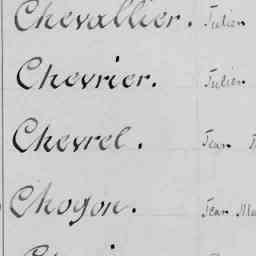 Chevallier. Julien
Chevrier. Julien
Chevrel. Jean
Chogon. Jean